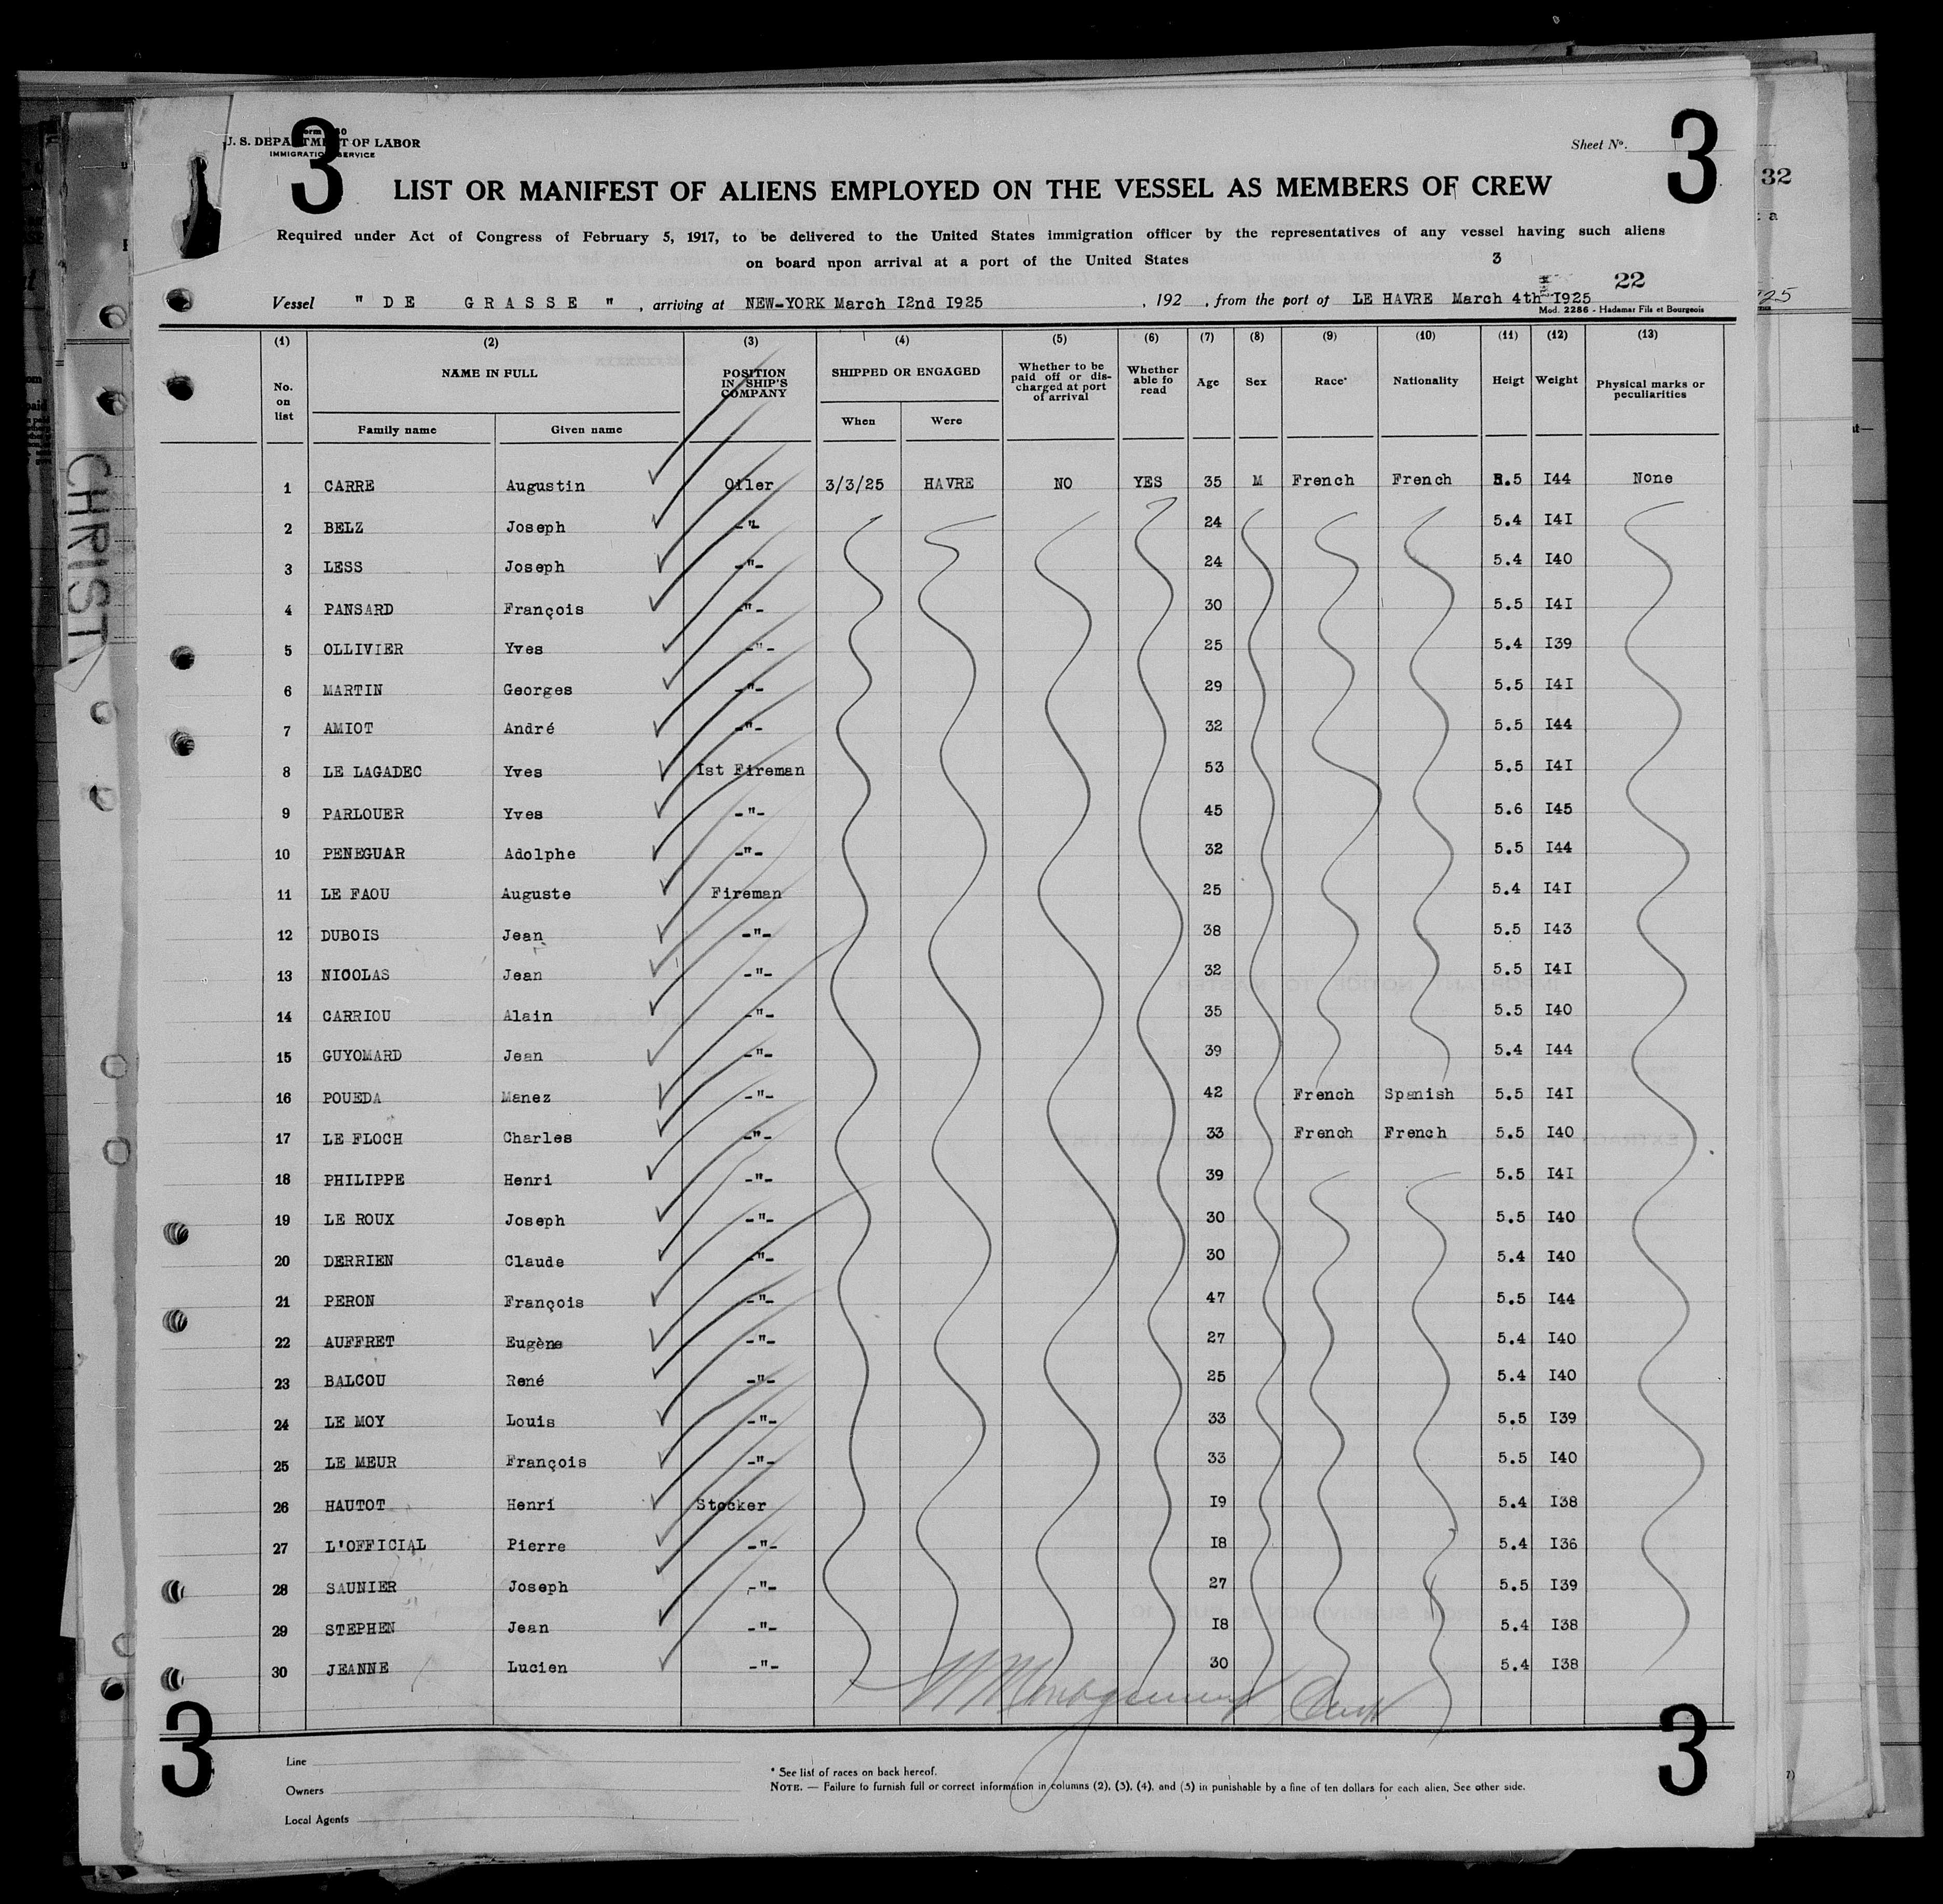 3
3
Form 680
U. S. DEPARTMENT OF LABOR
IMMIGRATION SERVICE
Sheet No.
LIST OR MANIFEST OF ALIENS EMPLOYED ON THE VESSEL AS MEMBERS OF CREW
32
Required under Act of Congress of February 5, 1917, to be delivered to the United States immigration officer by the representatives of any vessel having such aliens
on board npon arrival at a port of the United States
3
22
Vessel " DE GRASSE " , arriving at NEW-YORK March I2nd I925 , 192 , from the port of LE HAVRE March 4th I925
Mod. 2286 - Hadamar Fils et Bourgeois
(1) (2) (3) (4) (5) (6) (7) (8) (9) (10) (11) (12) (13)
No. on list NAME IN FULL POSITION IN SHIP'S COMPANY SHIPPED OR ENGAGED Whether to be paid off or discharged at port of arrival Whether able to read Age Sex Race* Nationality Heigt Weight Physical marks or peculiarities
Family name Given name When Were
1 CARRE Augustin Oiler 3/3/25 HAVRE NO YES 35 M French French 5.5 I44 None
2 BELZ Joseph -"- 24 5.4 I4I
3 LESS Joseph -"- 24 5.4 I40
4 PANSARD François -"- 30 5.5 I4I
5 OLLIVIER Yves -"- 25 5.4 I39
6 MARTIN Georges -"- 29 5.5 I4I
7 AMIOT André -"- 32 5.5 I44
8 LE LAGADEC Yves Ist Fireman 53 5.5 I4I
9 PARLOUER Yves -"- 45 5.6 I45
10 PENEGUAR Adolphe -"- 32 5.5 I44
11 LE FAOU Auguste Fireman 25 5.4 I4I
12 DUBOIS Jean -"- 38 5.5 I43
13 NICOLAS Jean -"- 32 5.5 I4I
14 CARRIOU Alain -"- 35 5.5 I40
15 GUYOMARD Jean -"- 39 5.4 I44
16 POUEDA Manez -"- 42 French Spanish 5.5 I4I
17 LE FLOCH Charles -"- 33 French French 5.5 I40
18 PHILIPPE Henri -"- 39 5.5 I4I
19 LE ROUX Joseph -"- 30 5.5 I40
20 DERRIEN Claude -"- 30 5.4 I40
21 PERON François -"- 47 5.5 I44
22 AUFFRET Eugène -"- 27 5.4 I40
23 BALCOU René -"- 25 5.4 I40
24 LE MOY Louis -"- 33 5.5 I39
25 LE MEUR François -"- 33 5.5 I40
26 HAUTOT Henri Stocker I9 5.4 I38
27 L'OFFICIAL Pierre -"- I8 5.4 I36
28 SAUNIER Joseph -"- 27 5.5 I39
29 STEPHEN Jean -"- I8 5.4 I38
30 JEANNE Lucien -"- 30 5.4 I38
3
3
Line
Owners
Local Agents
* See list of races on back hereof.
NOTE. — Failure to furnish full or correct information in columns (2), (3), (4), and (5) in punishable by a fine of ten dollars for each alien. See other side.
CHRIST